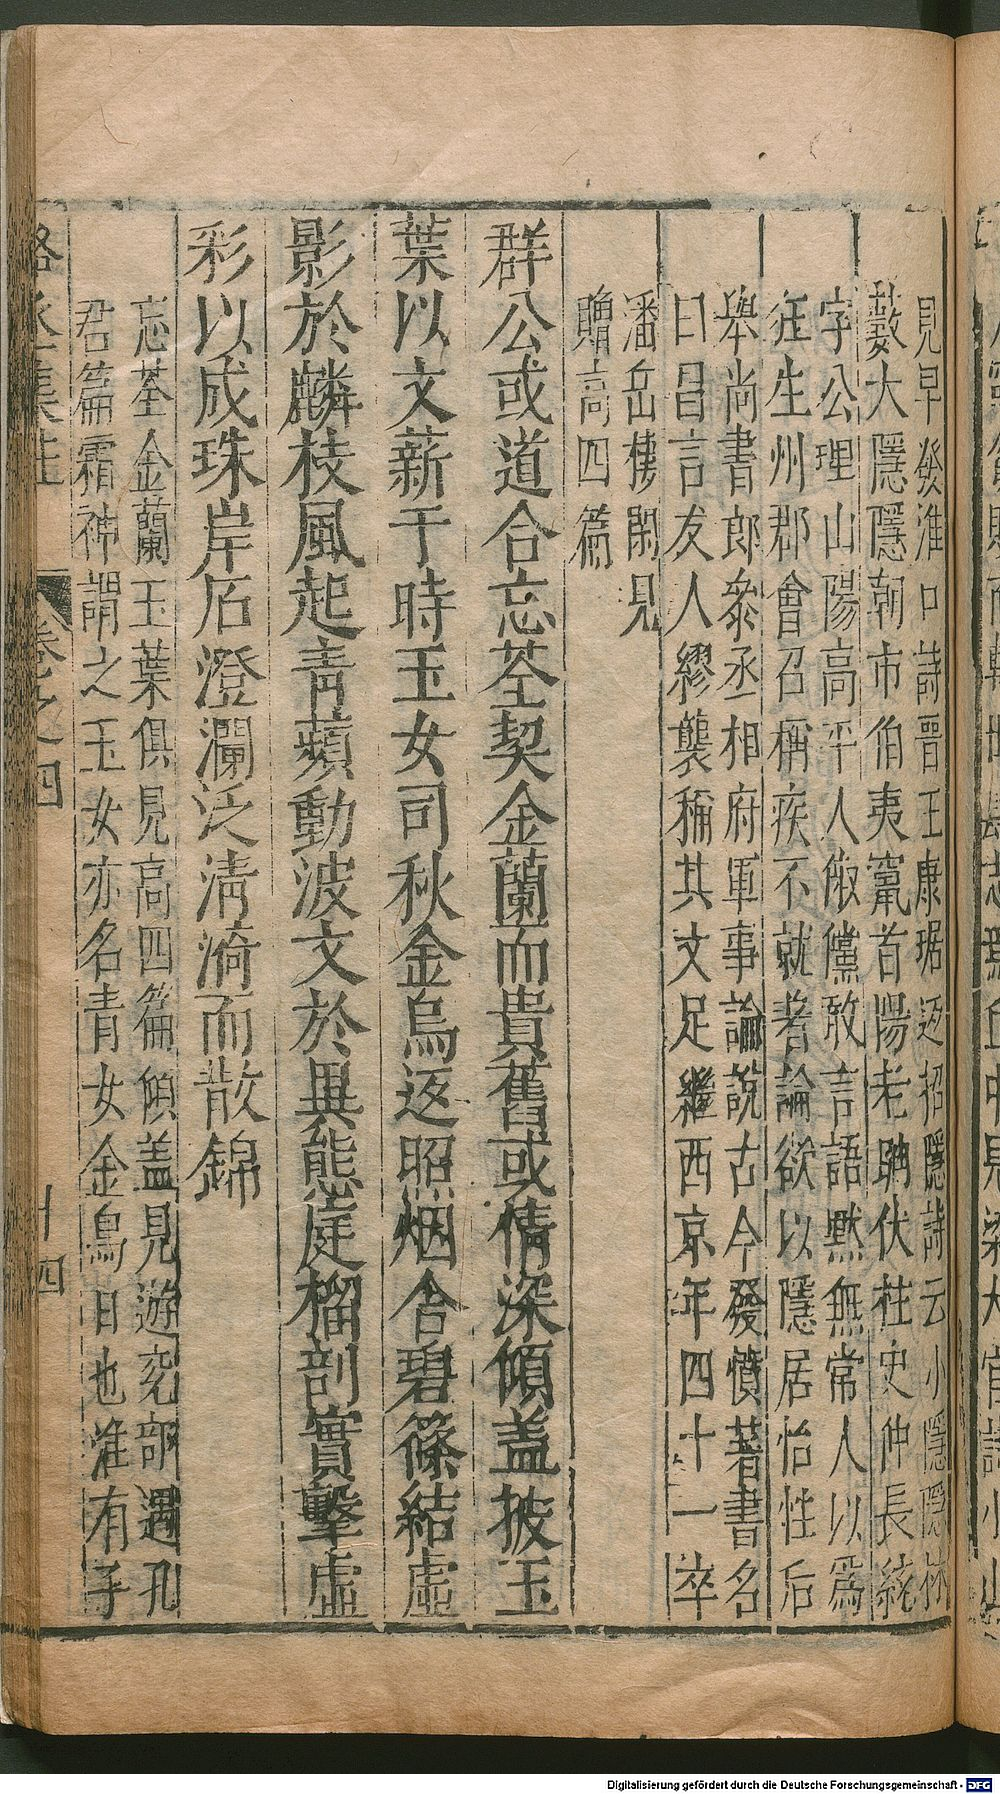 見早發淮口詩晉王康琚返招隱詩云小隱隱林
藪大隱隱朝市伯夷竄首陽老聃伏柱史仲長統
字公理山陽高平人俶儻敢言語黙無常人以爲
狂生州郡會召稱疾不就著論欲以隱居怡性后
舉尚書郎叅丞相府軍事論說古今發憤著書名
曰昌言友人繆襲稱其文足繼西京年四十一卒
潘岳棲閑見
贈高四篇
群公或道合忘荃契金蘭而貴舊或情深傾盖披玉
葉以文薪于時玉女司秋金烏返照烟含碧篠結虛
影於麟枝風起青蘋動波文於異態庭榴剖實擊虛
彩以成珠岸石澄瀾泛清漪而散錦
忘荃金蘭玉葉俱見高四篇傾盖見遊兖部遇孔
君篇霜神謂之玉女亦名青女金烏日也淮有子
駱丞集註 卷之四 十四
Digitalisierung gefördert durch die Deutsche Forschungsgemeinschaft - DFG